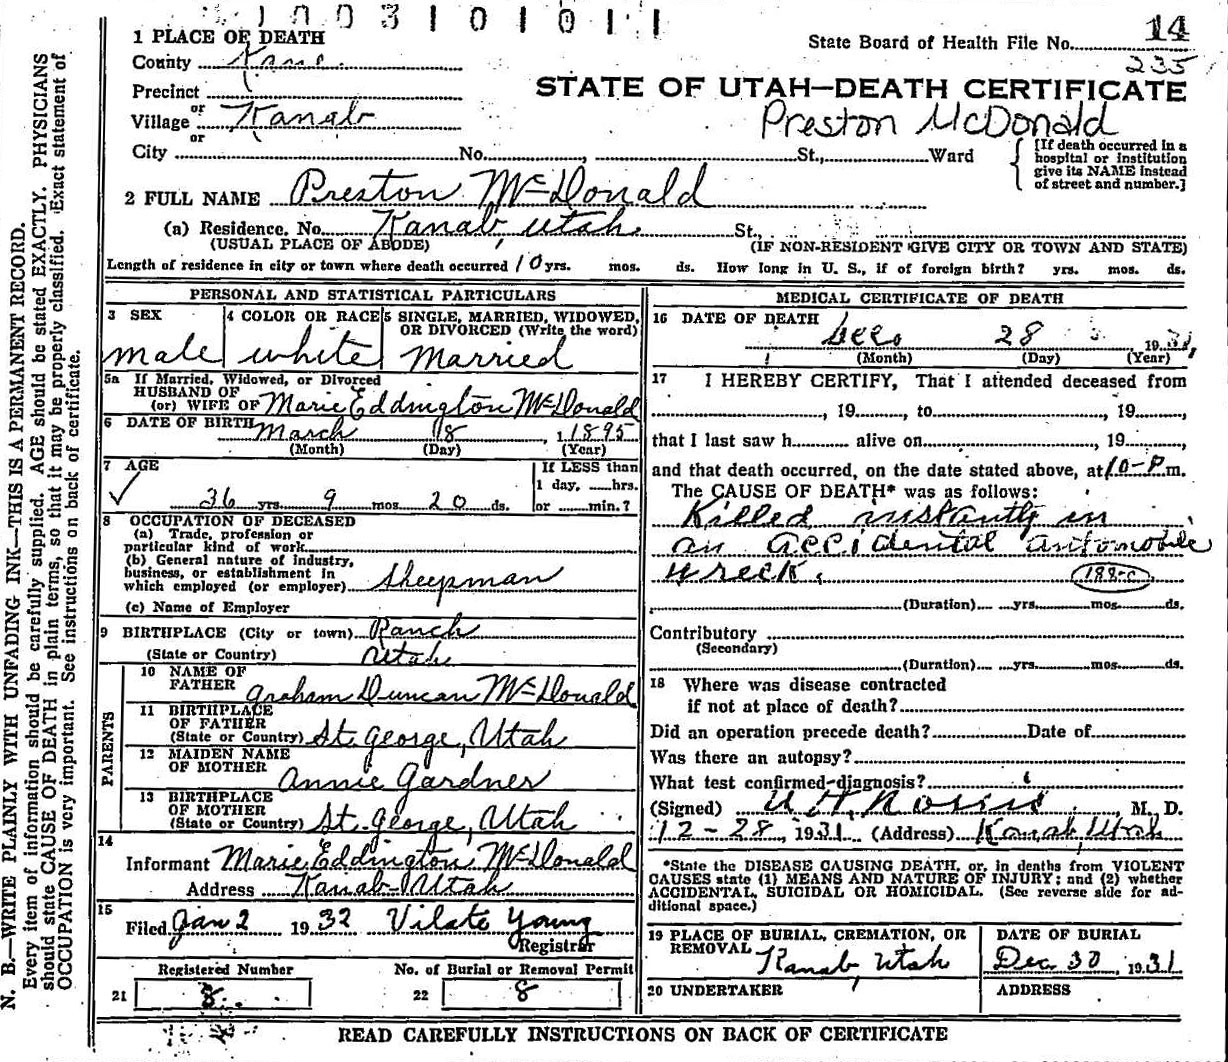 1003101011
14
State Board of Health File No.
235
STATE OF UTAH—DEATH CERTIFICATE
Preston McDonald
1 PLACE OF DEATH
County Kane
Precinct
or
Village Kanab
or
City No. , St., Ward
[If death occurred in a
hospital or institution
give its NAME instead
of street and number.]
2 FULL NAME Preston McDonald
(a) Residence. No. Kanab, Utah St.,
(USUAL PLACE OF ABODE) (IF NON-RESIDENT GIVE CITY OR TOWN AND STATE)
Length of residence in city or town where death occurred 10 yrs. mos. ds. How long in U. S., if of foreign birth? yrs. mos. ds.
PERSONAL AND STATISTICAL PARTICULARS
3 SEX
male
4 COLOR OR RACE
white
5 SINGLE, MARRIED, WIDOWED,
OR DIVORCED (Write the word)
Married
5a If Married, Widowed, or Divorced
HUSBAND OF
(or) WIFE OF Marie Eddington McDonald
6 DATE OF BIRTH March 8, 1895
(Month) (Day) (Year)
7 AGE
36 yrs. 9 mos. 20 ds.
If LESS than
1 day, hrs.
or min.?
8 OCCUPATION OF DECEASED
(a) Trade, profession or
particular kind of work
(b) General nature of industry,
business, or establishment in
which employed (or employer) Sheepman
(c) Name of Employer
9 BIRTHPLACE (City or town) Ranch
(State or Country) Utah
PARENTS
10 NAME OF
FATHER Graham Duncan McDonald
11 BIRTHPLACE
OF FATHER
(State or Country) St. George, Utah
12 MAIDEN NAME
OF MOTHER Annie Gardner
13 BIRTHPLACE
OF MOTHER
(State or Country) St. George, Utah
14
Informant Marie Eddington McDonald
Address Kanab Utah
15
Filed Jan 2 1932 Vilate Young
Registrar
Registered Number
21 8
No. of Burial or Removal Permit
22 8
MEDICAL CERTIFICATE OF DEATH
16 DATE OF DEATH Dec 28 1931
(Month) (Day) (Year)
17 I HEREBY CERTIFY, That I attended deceased from
, 19 , to , 19 ,
that I last saw h alive on , 19 ,
and that death occurred, on the date stated above, at 10-P m.
The CAUSE OF DEATH* was as follows:
Killed instantly in
an accidental automobile
wreck. 188-c
(Duration) yrs. mos. ds.
Contributory
(Secondary)
(Duration) yrs. mos. ds.
18 Where was disease contracted
if not at place of death?
Did an operation precede death? Date of
Was there an autopsy?
What test confirmed diagnosis?
(Signed) M. D.
12-28, 1931 (Address) Kanab, Utah
*State the DISEASE CAUSING DEATH, or, in deaths from VIOLENT
CAUSES state (1) MEANS AND NATURE OF INJURY; and (2) whether
ACCIDENTAL, SUICIDAL OR HOMICIDAL. (See reverse side for ad-
ditional space.)
19 PLACE OF BURIAL, CREMATION, OR
REMOVAL Kanab, Utah
DATE OF BURIAL
Dec. 30, 1931
20 UNDERTAKER
ADDRESS
READ CAREFULLY INSTRUCTIONS ON BACK OF CERTIFICATE
N. B.—WRITE PLAINLY WITH UNFADING INK—THIS IS A PERMANENT RECORD.
Every item of information should be carefully supplied. AGE should be stated EXACTLY. PHYSICIANS
should state CAUSE OF DEATH in plain terms, so that it may be properly classified. Exact statement of
OCCUPATION is very important. See instructions on back of certificate.